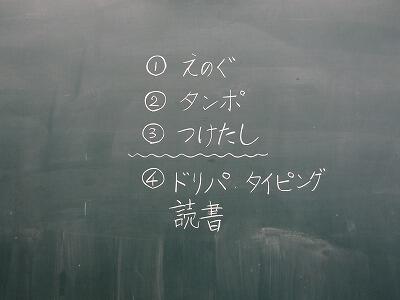 ① えのぐ
② タンポ
③ つけたし
④ ドリパ・タイピング
読書